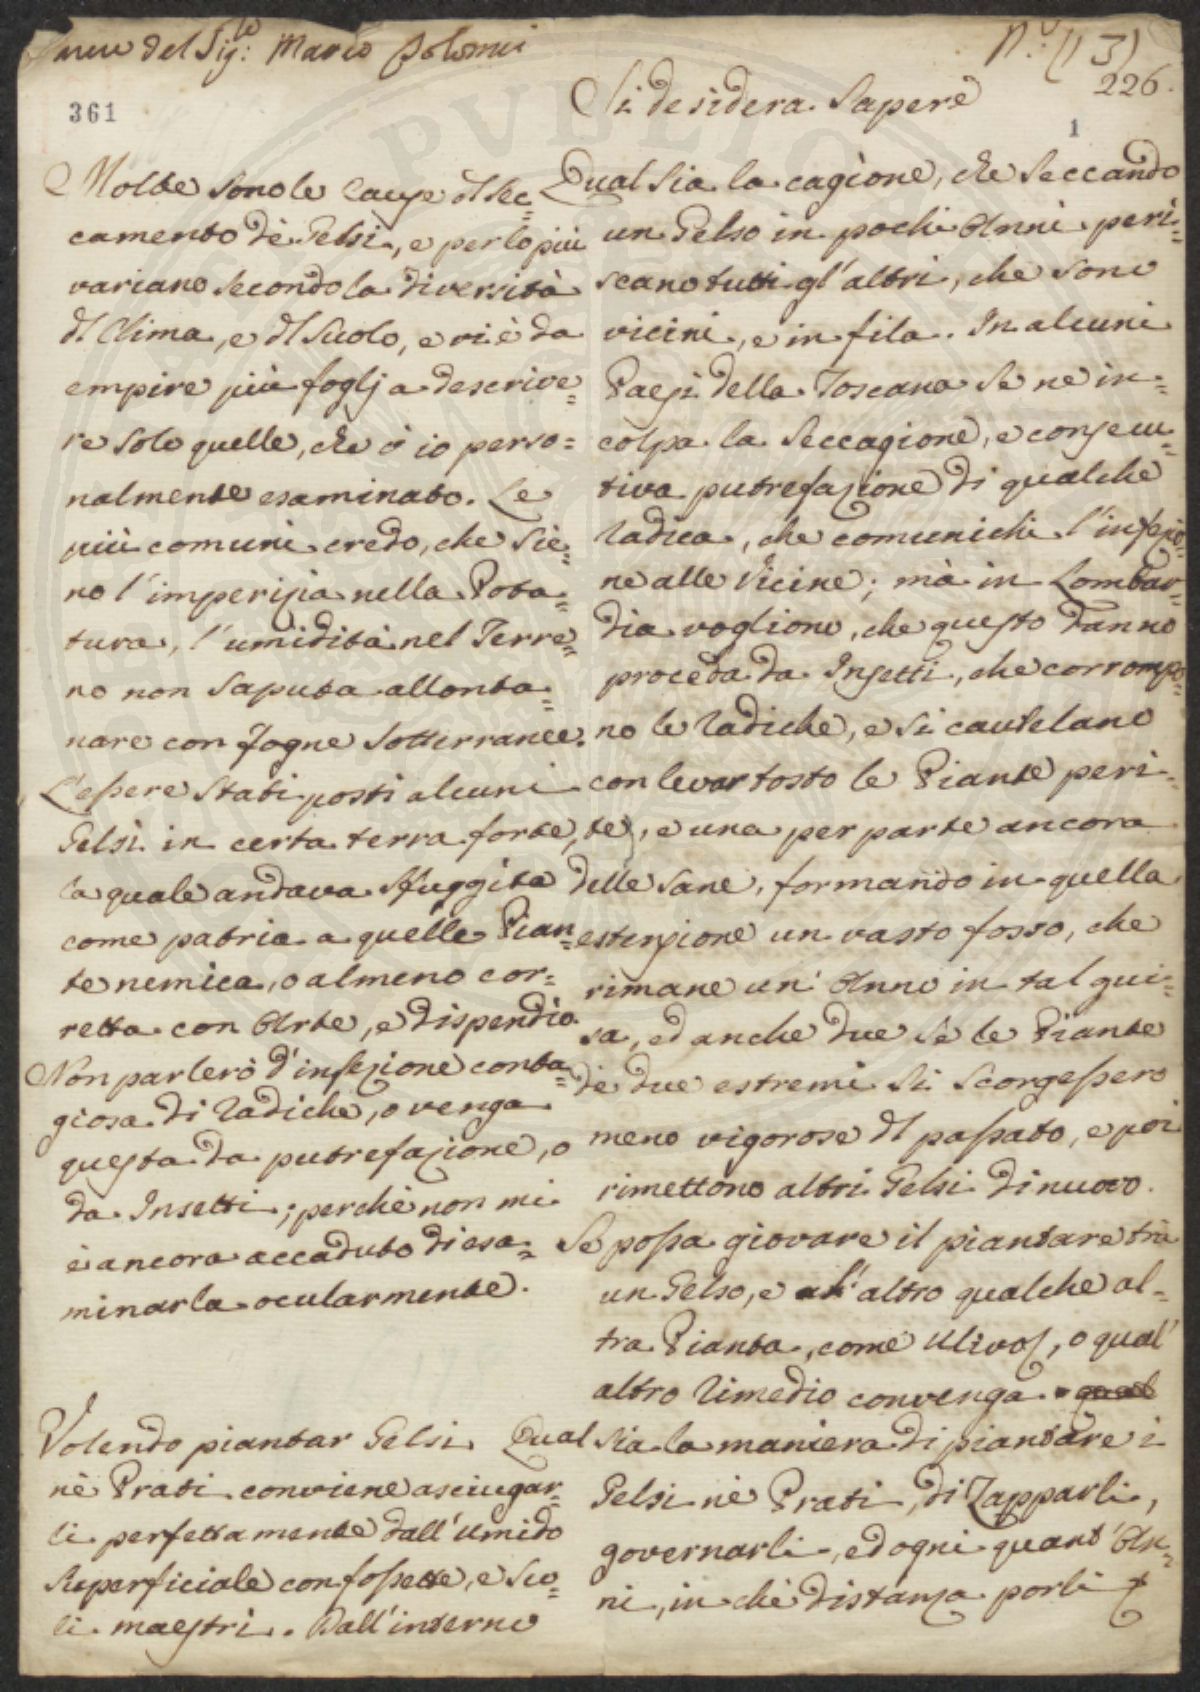 del Sig:le Mario
N.o (13)
226.
361
1
Si desidera Sapere
Molte sono le cause dl sec=
camento de Gelsi, e per lo più
variano secondo la diversità
dl Clima, e dl Suolo, e vi è da
empire più foglj a descrive=
re solo quelle, che ò io perso=
nalmente esaminato. Le
più comuni credo, che sie=
no l'imperizia nella Pota=
tura, l'umidità nel Terre=
no non saputa allonta=
nare con fogne sotterranee.
L'essere stati posti alcuni
Gelsi in certa terra forte,
la quale andava sfuggita
come patria a quelle Pian=
te nemica, o almeno cor=
retta con Arte, e dispendio.
Non parlerò d'infezione conta=
giosa di radiche, o venga
questa da putrefazione, o
da Insetti; perchè non mi
è ancora accaduto di esa=
minarla ocularmente.
Volendo piantar Gelsi
nè Prati conviene asciugar=
li perfettamente dall'umido
superficiale con fossette, e sco=
li maestri. Dall'interno
Qual sia la cagione, che seccando
un Gelso in pochi Anni peri=
scano tutti gl'altri, che sono
vicini, e in fila. In alcuni
Paesi della Toscana se ne in=
colpa la seccagione, e consecu=
tiva putrefazione di qualche
radica, che comunichi l'infezio=
ne alle vicine; mà in Lombar=
dia vogliono, che questo danno
proceda da Insetti, che corrompo=
no le radiche, e si cautelano
con levar tosto le Piante peri=
te, e una per parte ancora
delle sane, formando in quella
estenzione un vasto fosso, che
rimane un' Anno in tal gui=
sa, ed anche due se le Piante
dè due estremi si scorgessero
meno vigorose dl passato, e poi
rimettono altri Gelsi di nuovo.
Se possa giovare il piantare trà
un Gelso, e l'altro qualche al=
tra Pianta, come Ulivo, o qual'
altro rimedio convenga.
Qual sia la maniera di piantare i
Gelsi nè Prati, di Zapparli,
governarli, ed ogni quant'An=
ni, in che distanza porli